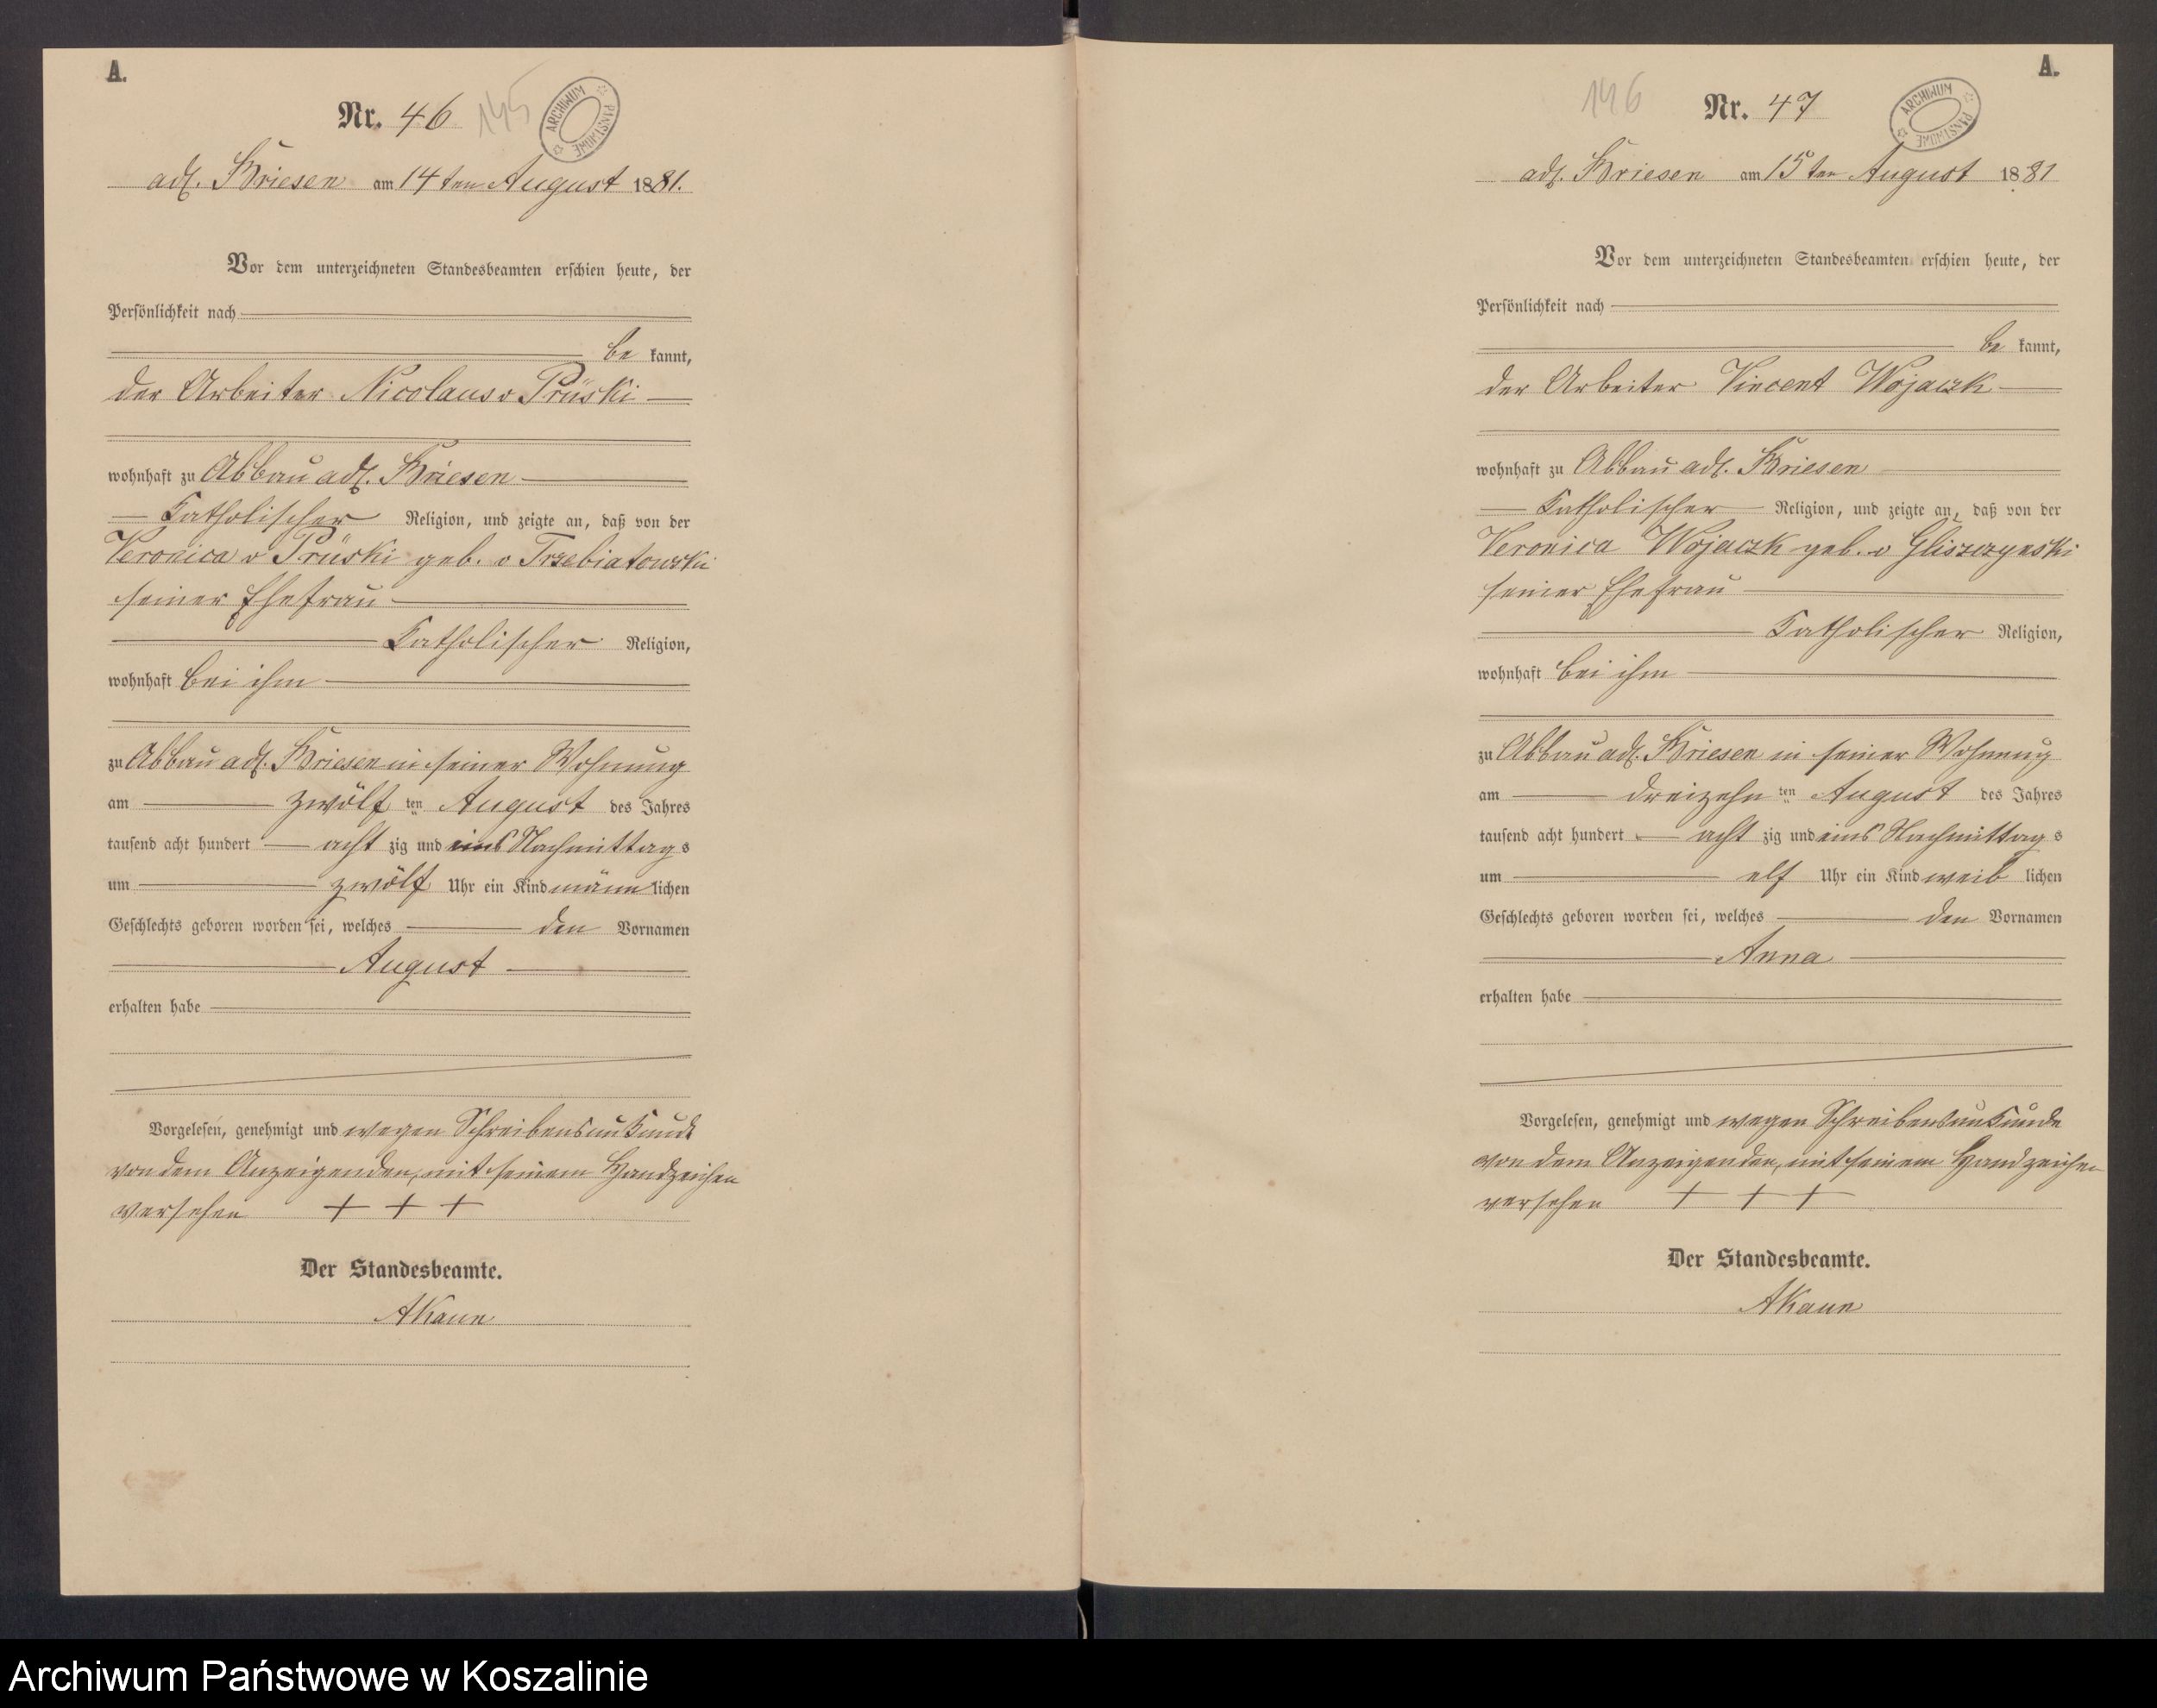 A.
Nr. 46
145
ARCHIWUM PAŃSTWOWE
adl. Briesen am 14ten August 1881.
Vor dem unterzeichneten Standesbeamten erschien heute, der
Persönlichkeit nach
be kannt,
der Arbeiter Nicolaus v Prüski
wohnhaft zu Abbau adl. Briesen
Katholischer Religion, und zeigte an, daß von der
Veronica v Prüski geb. v Trzebiatowski
seiner Ehefrau
Katholischer Religion,
wohnhaft bei ihm
zu Abbau adl. Briesen in seiner Wohnung
am zwölf ten August des Jahres
tausend acht hundert acht zig und eins Nachmittags
um zwölf Uhr ein Kind männlichen
Geschlechts geboren worden sei, welches den Vornamen
August
erhalten habe
Vorgelesen, genehmigt und wegen Schreibensunkunde
von dem Anzeigenden, mit seinem Handzeichen
versehen + + +
Der Standesbeamte.
A.
146
Nr. 47
ARCHIWUM PAŃSTWOWE
adl. Briesen am 15ten August 1881
Vor dem unterzeichneten Standesbeamten erschien heute, der
Persönlichkeit nach
be kannt,
der Arbeiter Vincent Wojaczk
wohnhaft zu Abbau adl. Briesen
Katholischer Religion, und zeigte an, daß von der
Veronica Wojaczk geb. v Gliszczynski
seiner Ehefrau
Katholischer Religion,
wohnhaft bei ihm
zu Abbau adl. Briesen in seiner Wohnung
am dreizehn ten August des Jahres
tausend acht hundert acht zig und eins Nachmittags
um elf Uhr ein Kind weib lichen
Geschlechts geboren worden sei, welches den Vornamen
Anna
erhalten habe
Vorgelesen, genehmigt und wegen Schreibensunkunde
von dem Anzeigenden, mit seinem Handzeichen
versehen + + +
Der Standesbeamte.
Archiwum Państwowe w Koszalinie